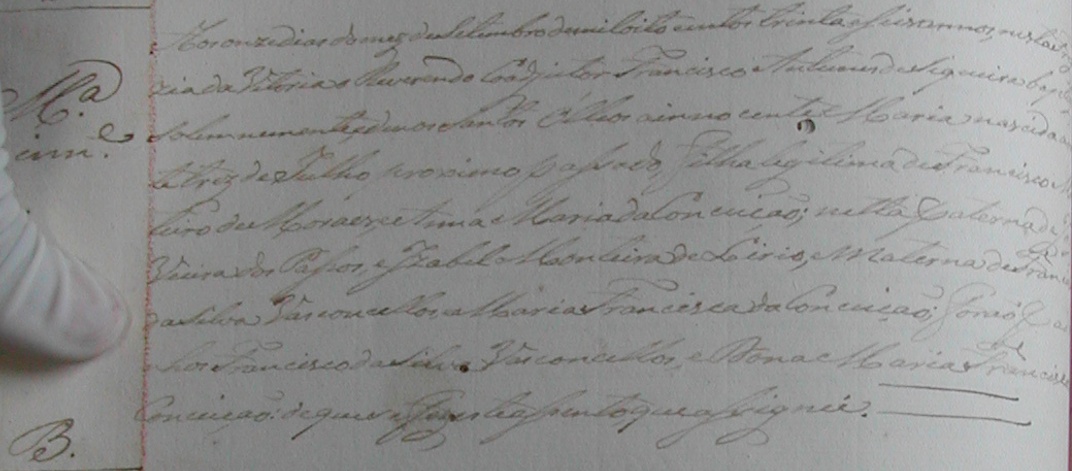 Aos onze dias do mez de Setembro de mil oito centos trinta e seis annos, nesta
ria da Vitoria o Reverendo Coadjutor Francisco Antunes de Siqueira bap
Mª
solemnemente, e deu os Santos Olleos a innocente Maria nascida a
inne.
te tres de Julho proximo passado, filha legitima de Francisco
teiro de Moraes, e Anna Maria da Conceição; netta Paterna de
Vieira dos Passos, e Izabel Monteira de Lirio, e Materna de Franc
da Silva Vasconcellos, e Maria Francisca da Conceição; forão
nhos Francisco da Silva Vasconcellos, e Dona Maria Francisc
Conceição: de que fiz este assento, que assignei.
B.